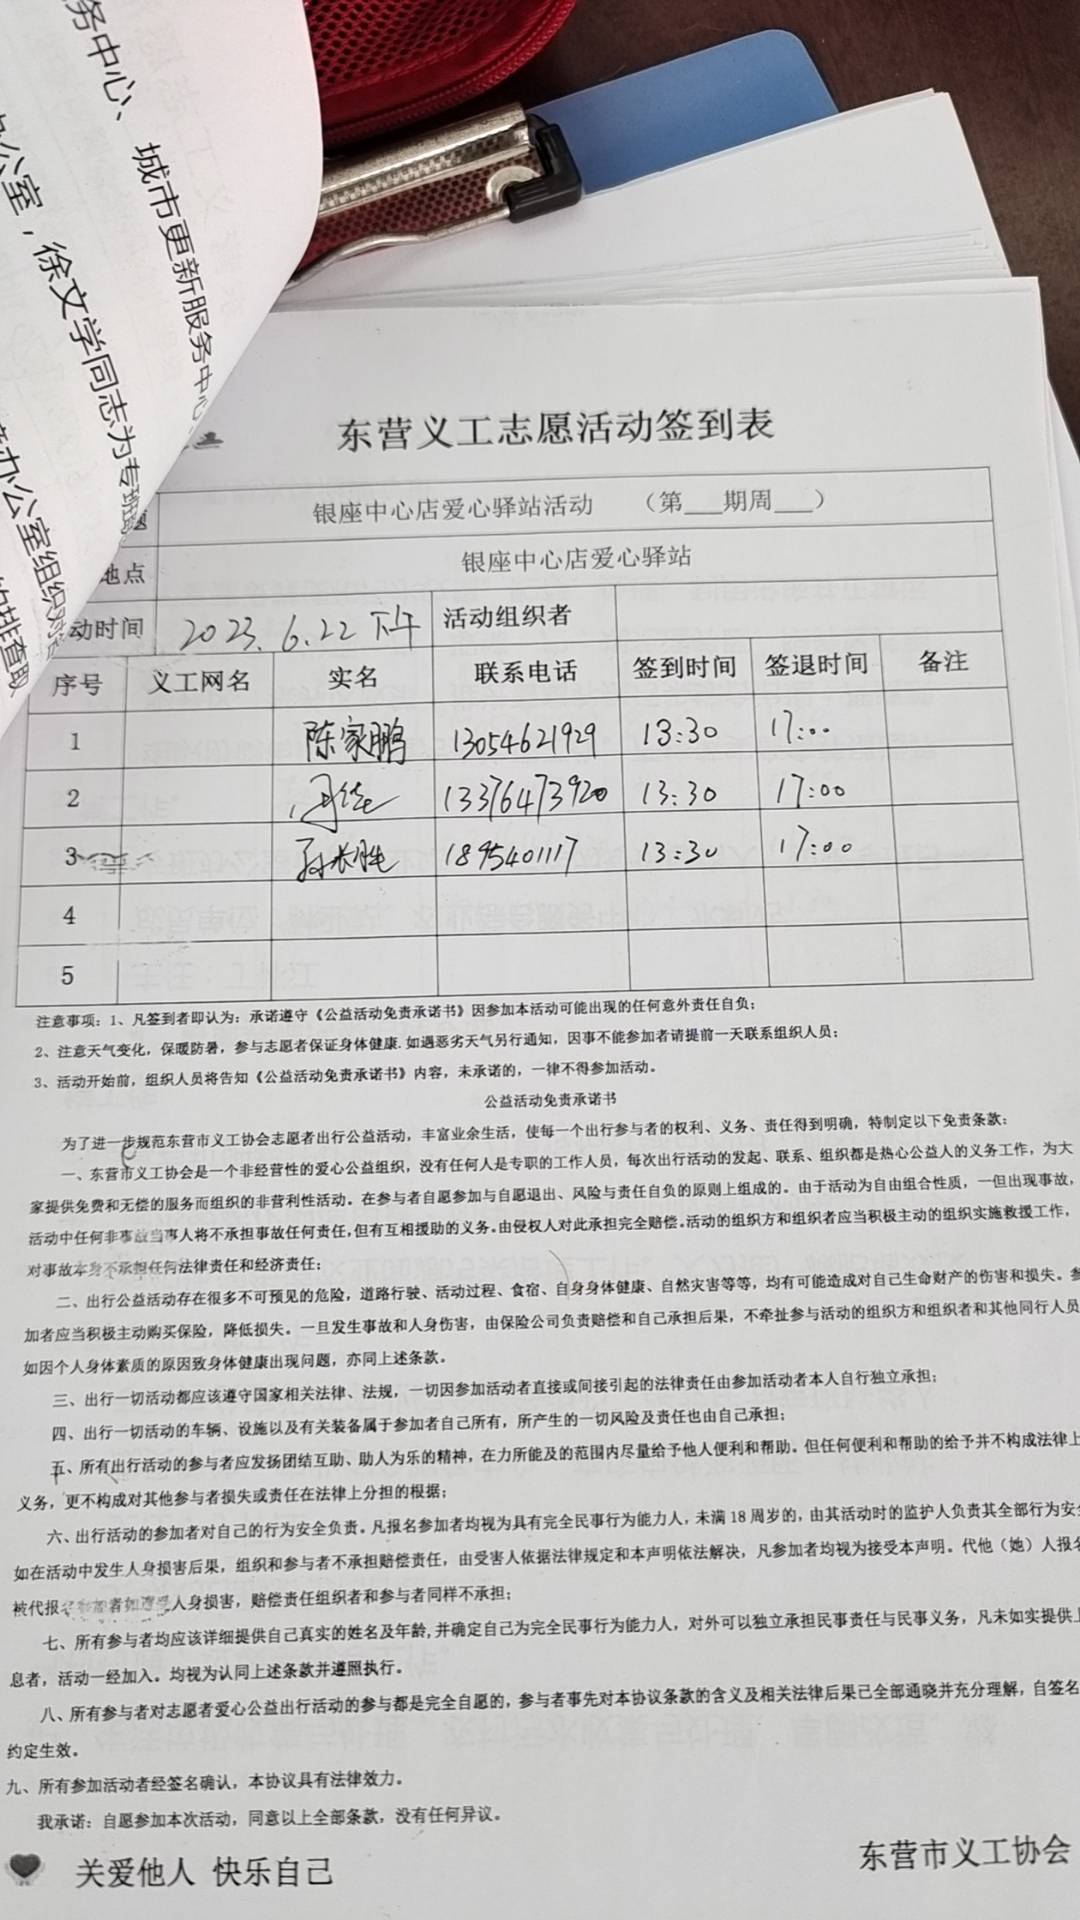 务中心、城市更新服务中心
公室，徐文学同志为专班
办公室组织
排查取
东营义工志愿活动签到表
银座中心店爱心驿站活动 （第___期周___）
地点 银座中心店爱心驿站
动时间 2023.6.22 下午 活动组织者
序号 义工网名 实名 联系电话 签到时间 签退时间 备注
1 陈家鹏 13054621929 13:30 17:00
2 13376473920 13:30 17:00
3 孙长胜 1895401117 13:30 17:00
4
5
注意事项：1、凡签到者即认为：承诺遵守《公益活动免责承诺书》因参加本活动可能出现的任何意外责任自负；
2、注意天气变化，保暖防暑，参与志愿者保证身体健康.如遇恶劣天气另行通知，因事不能参加者请提前一天联系组织人员；
3、活动开始前，组织人员将告知《公益活动免责承诺书》内容，未承诺的，一律不得参加活动。
公益活动免责承诺书
为了进一步规范东营市义工协会志愿者出行公益活动，丰富业余生活，使每一个出行参与者的权利、义务、责任得到明确，特制定以下免责条款：
一、东营市义工协会是一个非经营性的爱心公益组织，没有任何人是专职的工作人员，每次出行活动的发起、联系、组织都是热心公益人的义务工作，为大
家提供免费和无偿的服务而组织的非营利性活动。在参与者自愿参加与自愿退出、风险与责任自负的原则上组成的。由于活动为自由组合性质，一但出现事故，
活动中任何非事故当事人将不承担事故任何责任，但有互相援助的义务。由侵权人对此承担完全赔偿。活动的组织方和组织者应当积极主动的组织实施救援工作，
对事故本身不承担任何法律责任和经济责任；
二、出行公益活动存在很多不可预见的危险，道路行驶、活动过程、食宿、自身身体健康、自然灾害等等，均有可能造成对自己生命财产的伤害和损失。参
加者应当积极主动购买保险，降低损失。一旦发生事故和人身伤害，由保险公司负责赔偿和自己承担后果，不牵扯参与活动的组织方和组织者和其他同行人员
如因个人身体素质的原因致身体健康出现问题，亦同上述条款。
三、出行一切活动都应该遵守国家相关法律、法规，一切因参加活动者直接或间接引起的法律责任由参加活动者本人自行独立承担；
四、出行一切活动的车辆、设施以及有关装备属于参加者自己所有，所产生的一切风险及责任也由自己承担；
五、所有出行活动的参与者应发扬团结互助、助人为乐的精神，在力所能及的范围内尽量给予他人便利和帮助。但任何便利和帮助的给予并不构成法律上
义务，更不构成对其他参与者损失或责任在法律上分担的根据；
六、出行活动的参加者对自己的行为安全负责。凡报名参加者均视为具有完全民事行为能力人，未满18周岁的，由其活动时的监护人负责其全部行为安全
如在活动中发生人身损害后果，组织和参与者不承担赔偿责任，由受害人依据法律规定和本声明依法解决，凡参加者均视为接受本声明。代他（她）人报名
被代报名参加者如遭受人身损害，赔偿责任组织者和参与者同样不承担；
七、所有参与者均应该详细提供自己真实的姓名及年龄,并确定自己为完全民事行为能力人，对外可以独立承担民事责任与民事义务，凡未如实提供上
息者，活动一经加入。均视为认同上述条款并遵照执行。
八、所有参与者对志愿者爱心公益出行活动的参与都是完全自愿的，参与者事先对本协议条款的含义及相关法律后果已全部通晓并充分理解，自签名
约定生效。
九、所有参加活动者经签名确认，本协议具有法律效力。
我承诺：自愿参加本次活动，同意以上全部条款，没有任何异议。
关爱他人 快乐自己
东营市义工协会